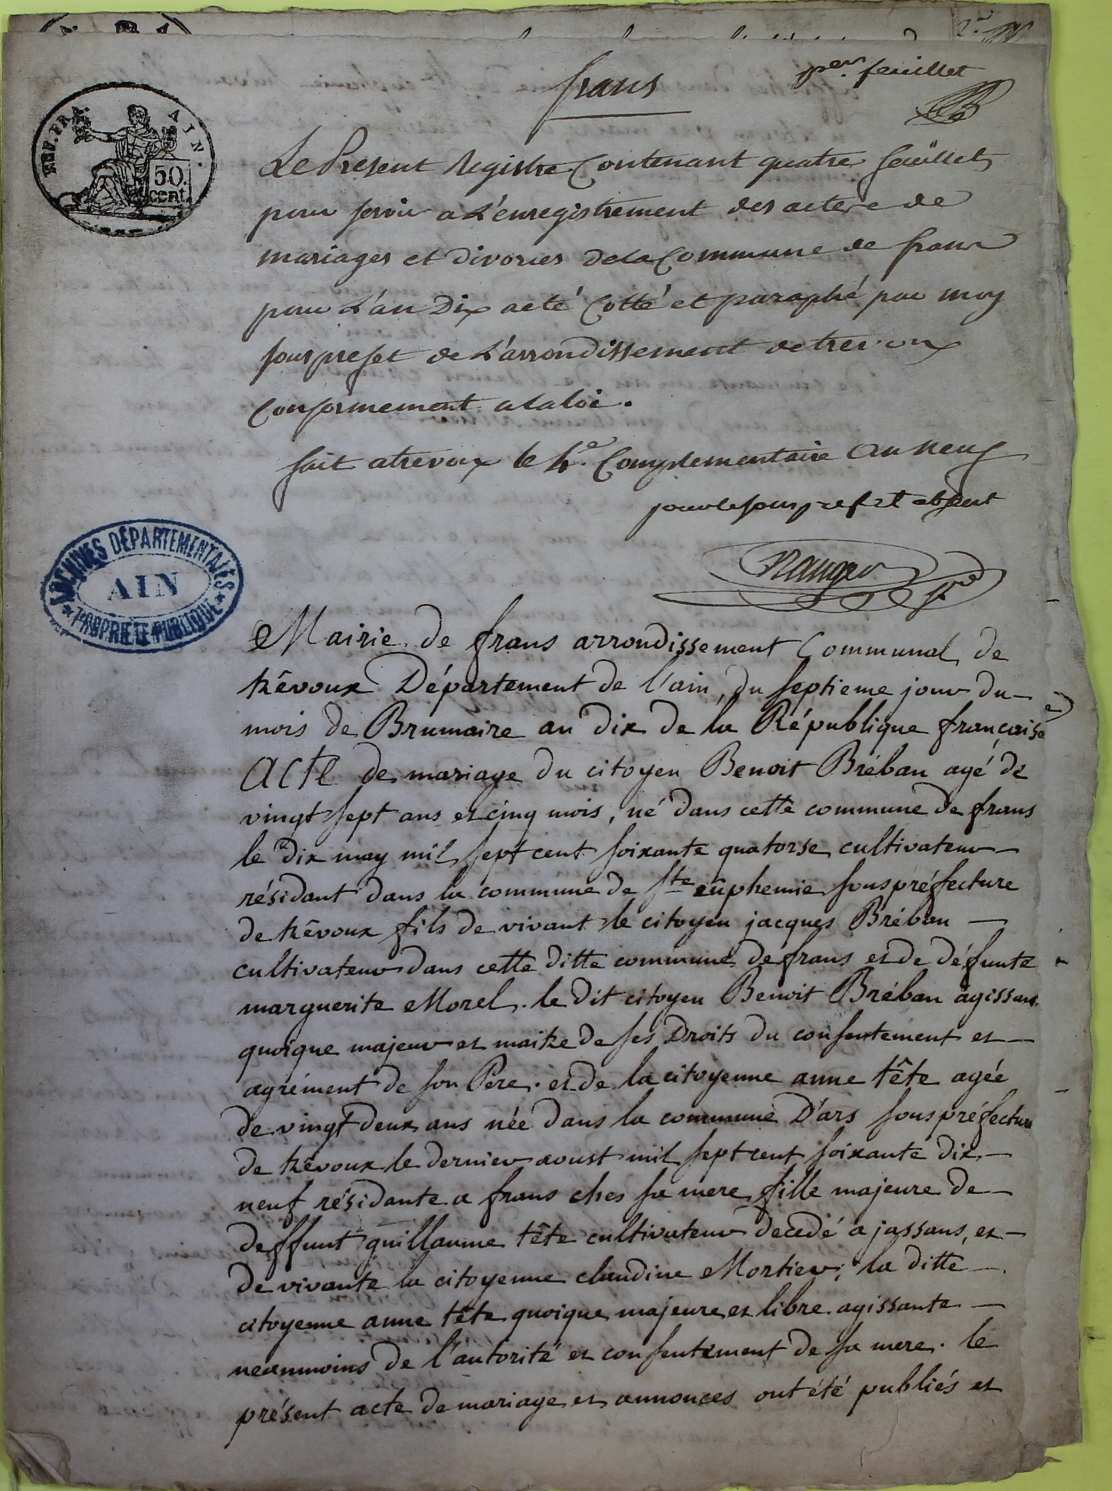 frans
per. feuillet
REP. FRA. AIN.
50. cent.
Le Present Registre Contenant quatre feüillets
pour servir a L'enregistrement des actes de
mariages et divorces de la Commune de frans
pour L'an Dix a eté Cotté et paraphé par moy
sous prefet de L'arrondissement de trevoux
Conformement a la loi.
fait a trevoux le 4e. Complementaire an neuf
pour le sous prefet absent
ARCHIVES DÉPARTEMENTALES
AIN
PROPRIÉTÉ PUBLIQUE
Mairie de frans arrondissement Communal de
trêvoux Département de l'ain, du septieme jour du
mois de Brumaire an dix de la République françoise
Acte de mariage du citoyen Benoit Bréban agé de
vingt sept ans et cinq mois, né dans cette commune de frans
le dix may mil sept cent soixante quatorse cultivateur
résidant dans la commune de Ste eûphemie souspréfecture
de trêvoux fils de vivant le citoyen jacques Bréban
cultivateur dans cette ditte commune de frans et de défunte
marguerite Morel. le dit citoyen Benoit Bréban agissant
quoique majeur et maitre de ses Droits du consentement et
agrément de son Pere. et de la citoyenne anne tête agée
de vingt deux ans née dans la commune D'ars souspréfecture
de trêvoux le dernier aoust mil sept cent soixante dix
neuf résidante a frans ches sa mere fille majeure de
deffunt guillaume tête cultivateur decedé a jassans, et
de vivante la citoyenne claudine Mortier; la ditte
citoyenne anne tête quoique majeure et libre agissante
neanmoins de l'autorité et consentement de sa mere. le
présent acte de mariage et annonces ont été publiés et